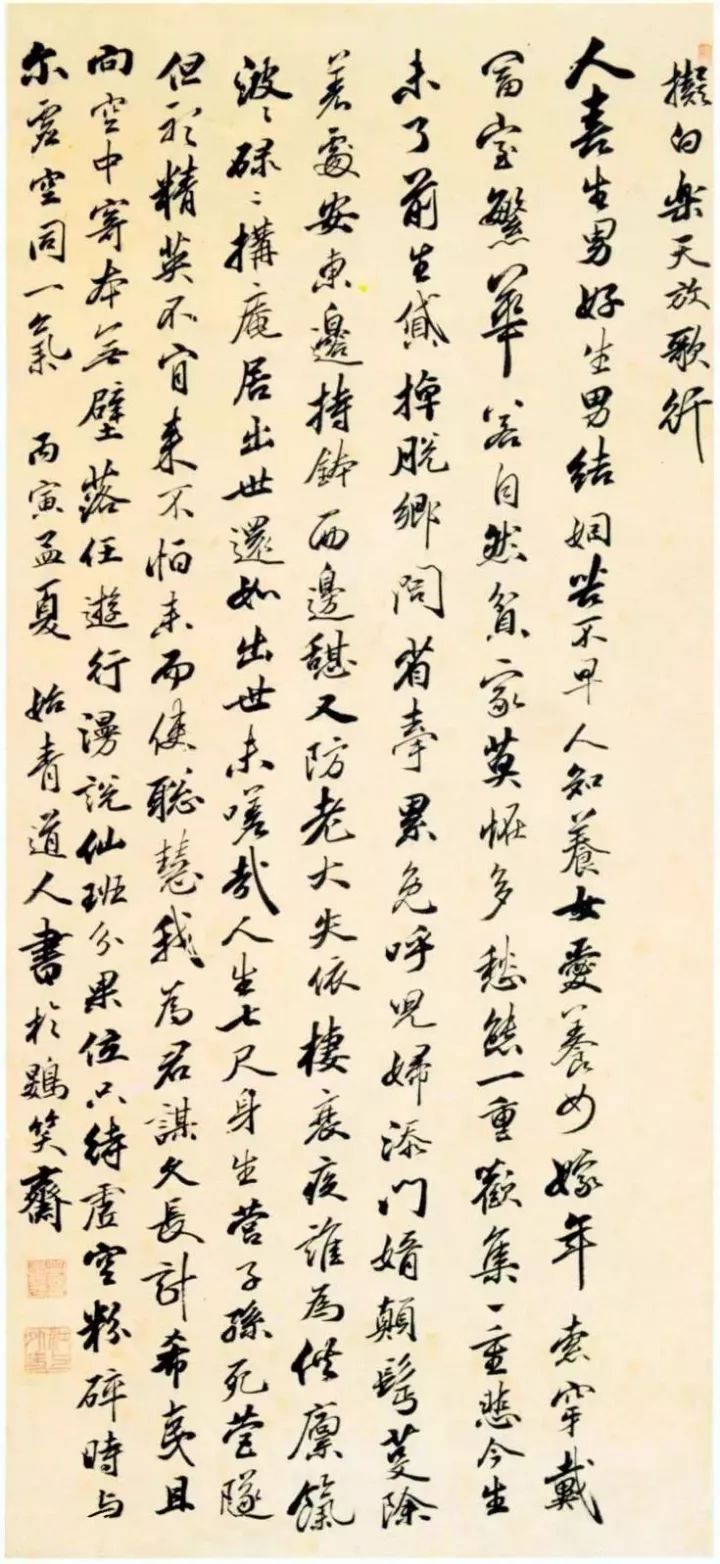 擬白楽天放歌行
人喜生男好生男結姻苦不早人知養女愛養女嫁年索穿戴
富室繁華若自然貧家莫多愁態一重歡集一重悲今生
未了前生掉脫鄉問省牽累免呼兒婦添門婿顛除
處安東邊持鉢西邊憇又防老大失依棲衰疾誰為供廩餼
波〻碌〻搆庵居出世還如出世未嗟哉人生七尺身生營子孫死營隧
但形精英不肎来不怕而使聡慧我為君謀久長計希夷且
向空中寄本無壁落任遊行漫說仙班分果位只待虛空粉碎時与
尔虛空同一氣 丙寅孟夏 始青道人書於鷃笑齋